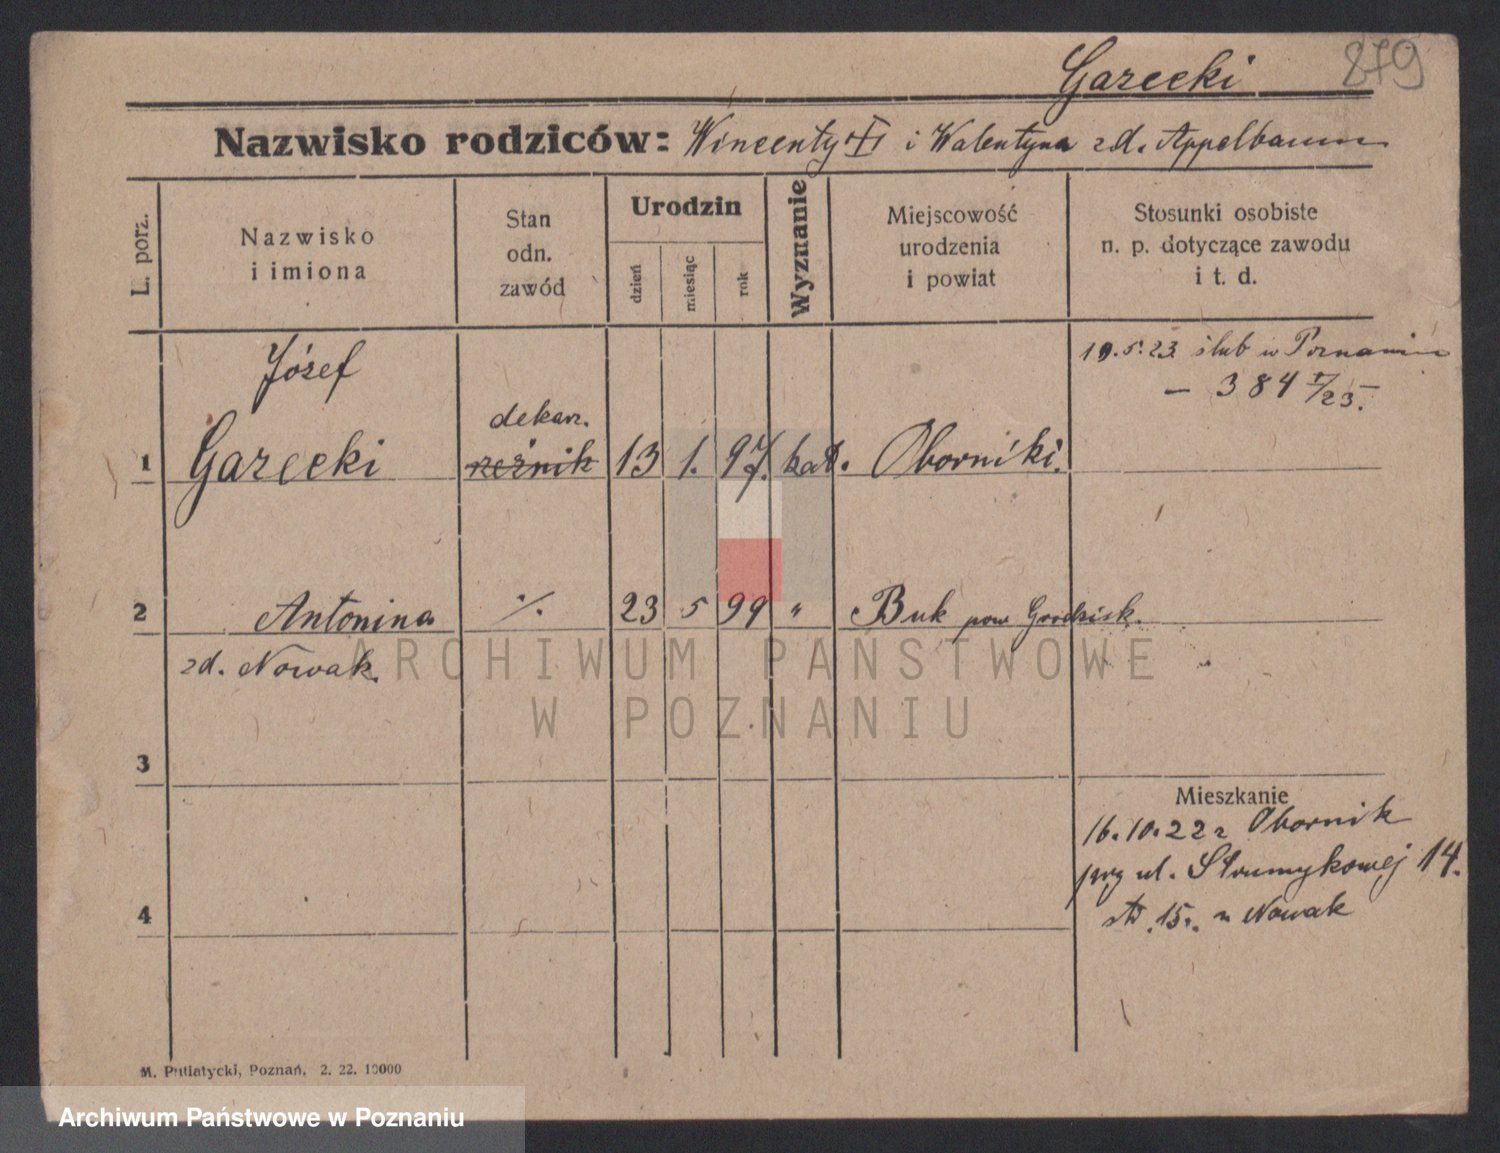 Garecki 879
Nazwisko rodziców: Wincenty i Walentyna zd. Appelbaum
L. porz.
Nazwisko
i imiona
Stan
odn.
zawód
Urodzin
dzień
miesiąc
rok
Wyznanie
Miejscowość
urodzenia
i powiat
Stosunki osobiste
n. p. dotyczące zawodu
i t. d.
10.5.23 ślub w Poznaniu
— 384 I/23.
Józef
dekarz.
1 Garecki rzeźnik 13 1. 97. kat. Oborniki.
2 Antonina ./. 23 5 99 " Buk pow Grodzisk.
zd. Nowak.
ARCHIWUM PAŃSTWOWE
W POZNANIU
3
Mieszkanie
16.10.22 z Obornik
przy ul. Strumykowej 14.
15. u Nowak
4
M. Putiatycki, Poznań, 2. 22. 10000
Archiwum Państwowe w Poznaniu